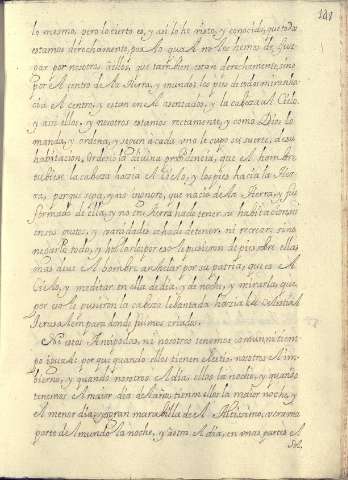 141
lo mesmo, pero lo cierto es, y assi lo he visto, y conocido, que todos
estamos derechamente, por lo qual no les hemos de juz-
gar por nosotros à ellos, que tambien estan derechamente, sino
por el centro de la tierra, y mundo, los pies de todos miran ha-
cia el centro, y estan en el asentados, y la cabeza al Cielo.
y assi ellos, y nosotros estamos rectamente, y como Dios lo
manda, y ordena, y segun à cada uno le cupo su suerte, de su
habitacion. Ordenò la divina providencia, que el hombre
tubiese la cabeza hazia el Cielo, y los pies hazia la tier-
ra, porque sepa, y no ignore, que naciò de la tierra, y fue
formado de ella, y no en tierra ha de tener su habitacion, ni
en sus gustos, y vanidades se ha de detener, ni recrear, sino
negarlo todo, y hollarlo, por eso le pusieron de pies sobre ella,
mas deve el hombre anhelar por su patria, que es el
Cielo, y meditar en ella de dia, y de noche, y mirarla, que
por eso le pusieron la cabeza lebantada hazia la celestial
Jerusalem para donde fuimos criados.
Ni estos Antipodas, ni nosotros tenemos comunmente tiem-
po igual: porque quando ellos tienen el estio, nosotros el in-
bierno, y quando nosotros el dia, ellos la noche, y quando
tenemos el maior dia del año, tienen ellos la maior noche, y
el menor dia, y es gran maravilla de el Altissimo, ver en una
parte del mundo la noche, y en otra el dia, en unas partes el
Sol.